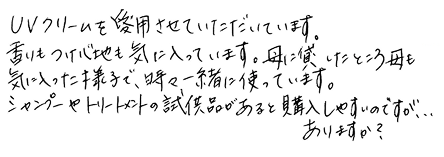 UVクリームを愛用させていただいています。
香りもつけ心地も気に入っています。母に貸したところ母も
気に入った様子で、時々一緒に使っています。
シャンプーやトリートメントの試供品があると購入しやすいのですが、、、
ありますか？